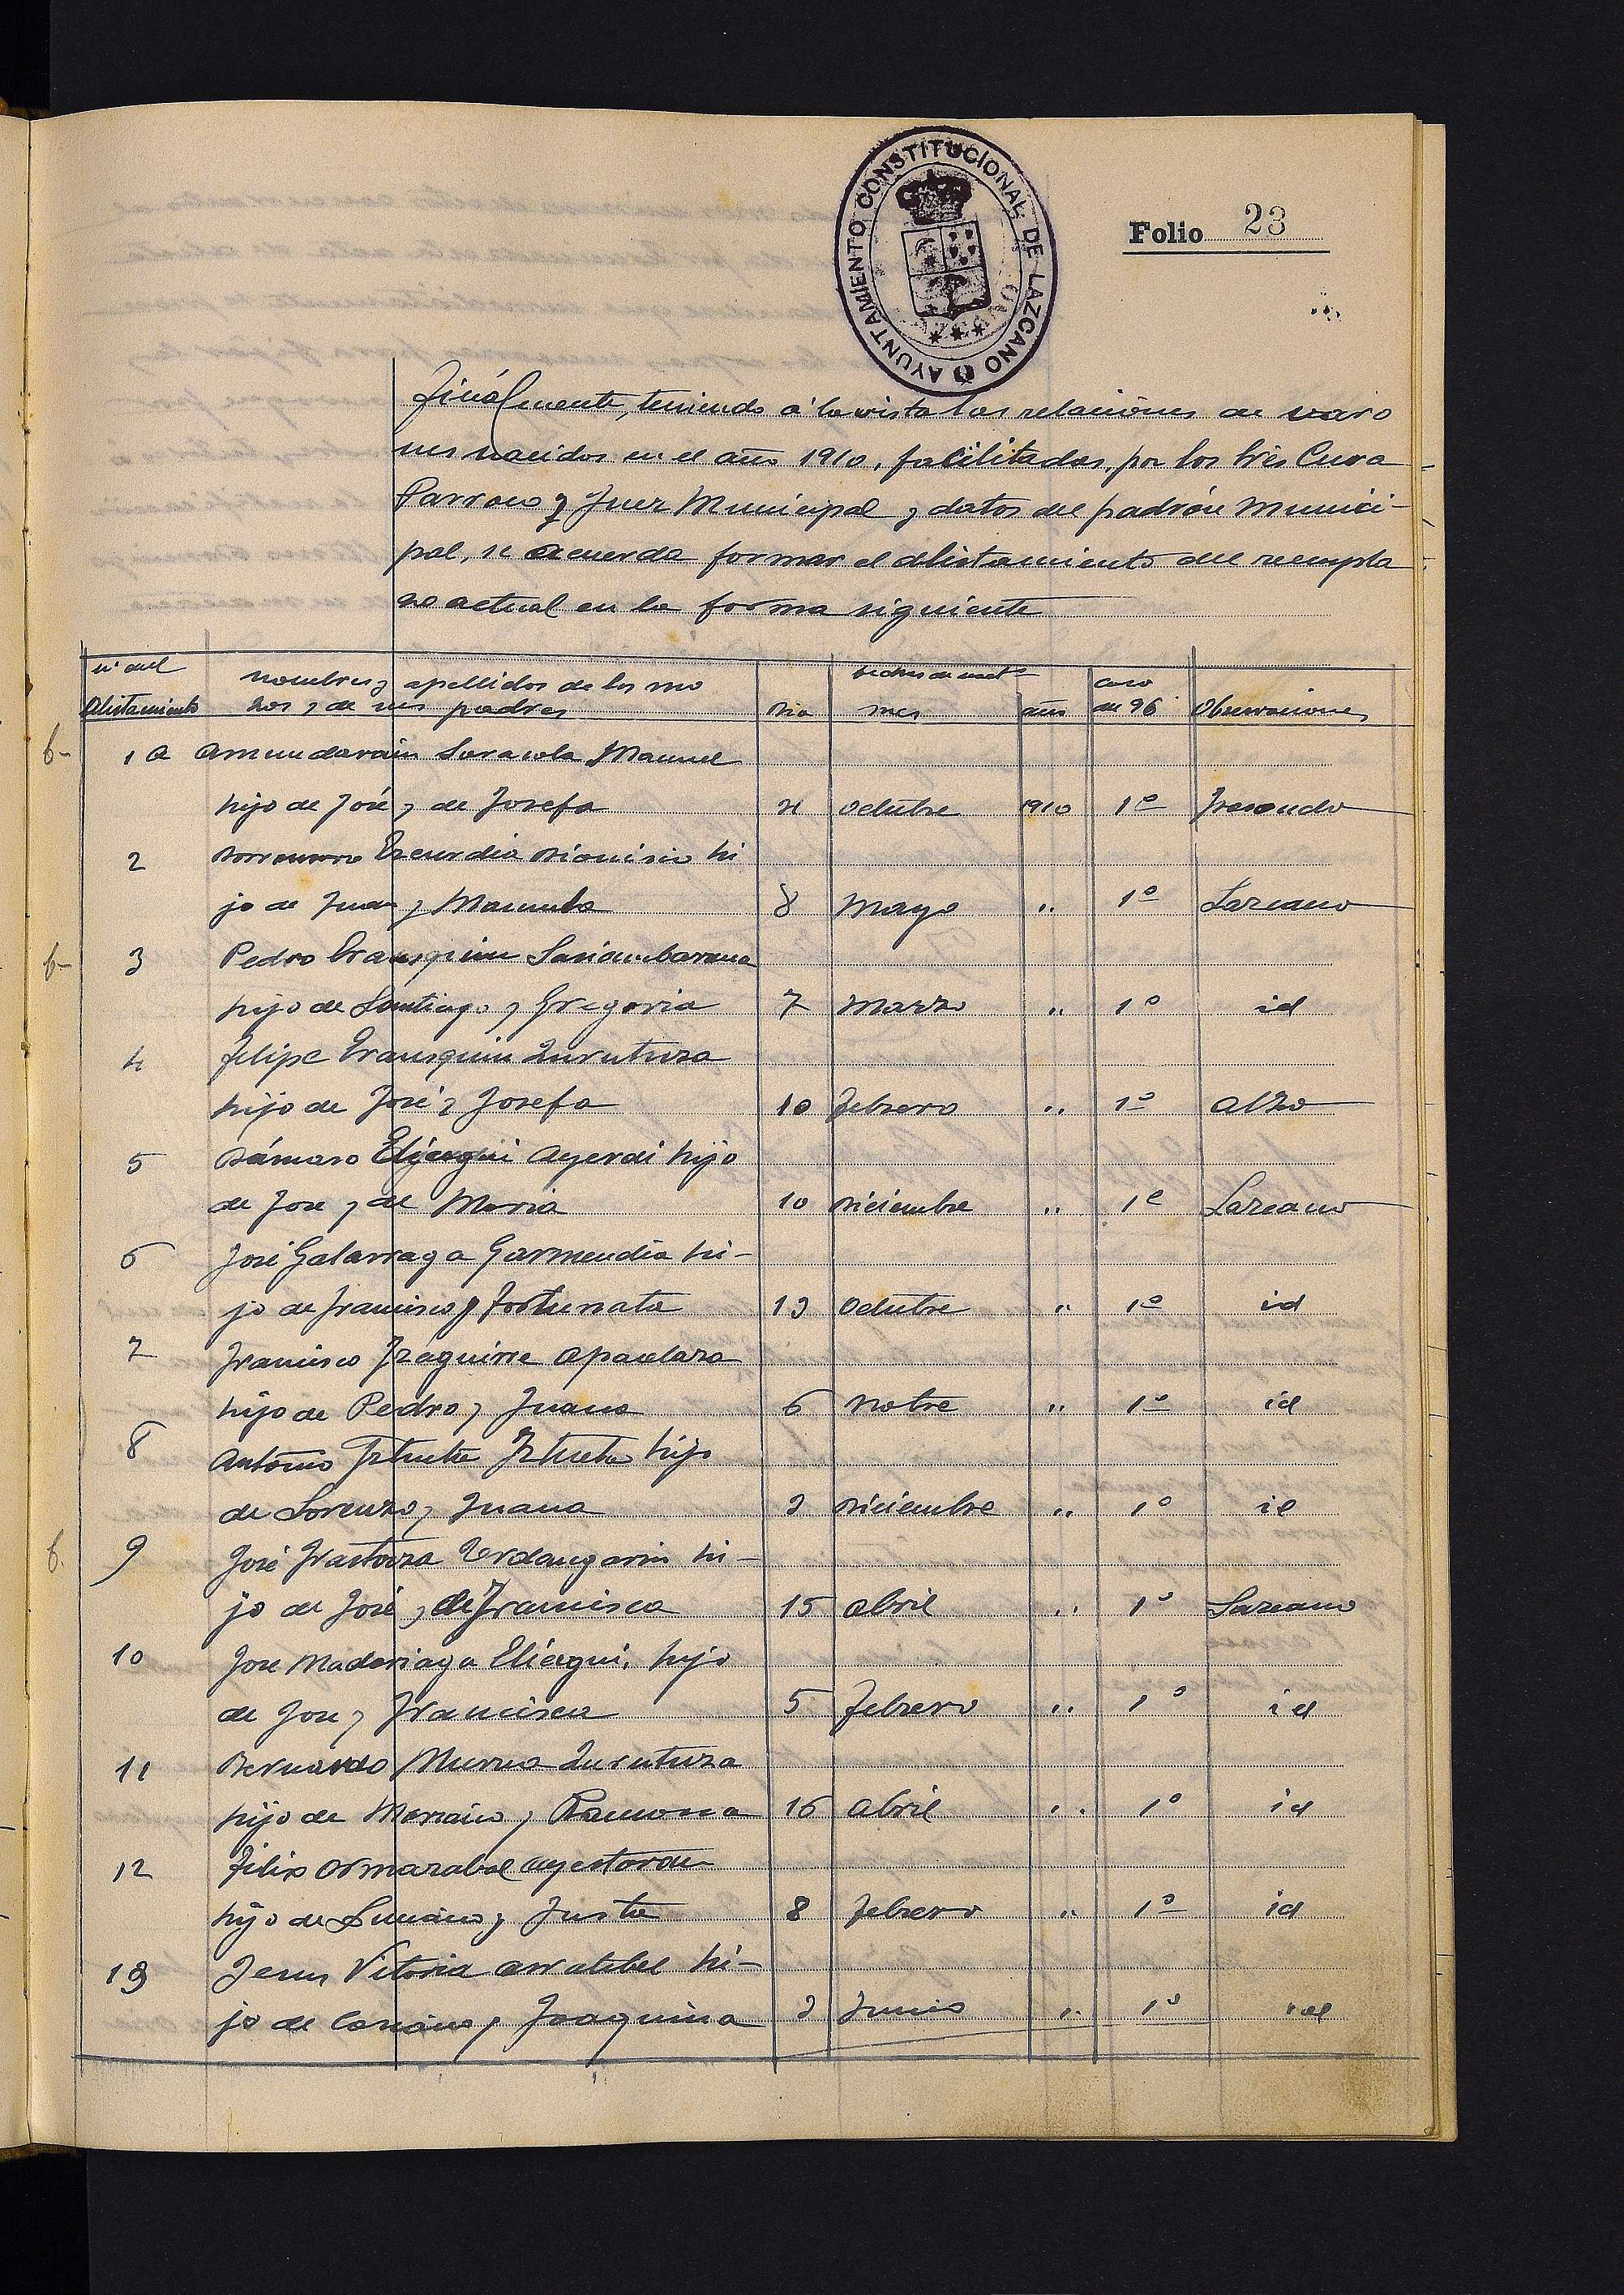 AYUNTAMIENTO CONSTITUCIONAL DE LAZCANO
Folio 23
Finalmente, teniendo á la vista las relaciones de varo
nes nacidos en el año 1910, facilitadas, por los Cura
Parroco y Juez Municipal y datos del padrón Munici-
pal, se acuerda formar el alistamiento del reempla
zo actual en la forma siguiente
nº del Alistamiento
nombres y apellidos de los mo
zos y de sus padres
Dia mes año
caso del 96
Observaciones
1 a Amundarain Manuel
hijo de José y de Josefa 4 octubre 1910 1º
2 Ezcurdia Dionisio hi
jo de Juan y Manuela 8 Mayo " 1º Lazcano
3 Pedro Erausquin
hijo de Santiago y Gregoria 7 Marzo " 1º id
4 Felipe Erausquin Zurutuza
hijo de José y Josefa 10 Febrero " 1º Alzo
5 Dámaso Eliçegui Ayerdi hijo
de Jose y de Maria 10 Diciembre " 1º Lazcano
6 José Galarraga Garmendia hi-
jo de Francisco y Fortunata 13 Octubre " 1º id
7 Francisco Izaguirre Apaolaza
hijo de Pedro y Juana 6 Nobre " 1º id
8 Antonio Iztueta Iztueta hijo
de Lorenzo y Juana 3 Diciembre " 1º id
9 José Irastorza Urdangarin hi-
jo de José y de Francisca 15 Abril " 1º Lazcano
10 Jose Madariaga Eliçegui, hijo
de Jose y Francisca 5 Febrero " 1º id
11 Bernardo Murua Zurutuza
hijo de Mariano y Ramona 16 Abril " 1º id
12 Felix Ormazabal Ayestaran
hijo de Luciano y Justa 8 Febrero " 1º id
13 Jesus Vitoria Arratibel hi-
jo de y Joaquina 3 Junio " 1º id